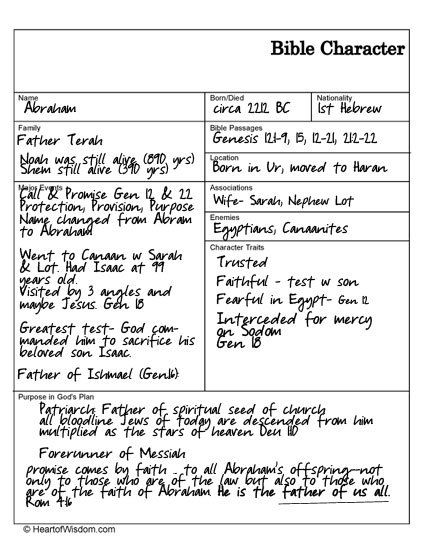 Bible Character
Name
Abraham
Born/Died
circa 2212 BC
Nationality
1st Hebrew
Family
Father Terah
Noah was still alive (890 yrs)
Shem still alive (390 yrs)
Bible Passages
Genesis 12:1-9, 15, 12-21, 21:2-22
Location
Born in Ur, moved to Haran
Major Events
Call & Promise Gen 12 & 22
Protection, Provision, Purpose
Name changed from Abram
to Abraham
Went to Canaan w Sarah
& Lot. Had Isaac at 99
years old.
Visited by 3 angles and
maybe Jesus. Gen 18
Greatest test- God com-
manded him to sacrifice his
beloved son Isaac.
Father of Ishmael (Gen16)
Associations
Wife- Sarah, Nephew Lot
Enemies
Egyptians, Canaanites
Character Traits
Trusted
Faithful - test w son
Fearful in Egypt- Gen 12
Interceded for mercy
on Sodom
Gen 18
Purpose in God's Plan
Patriarch Father of spiritual seed of church
all bloodline Jews of today are descended from him
multiplied as the stars of heaven Deu 1:10
Forerunner of Messiah
promise comes by faith .. to all Abraham's offspring--not
only to those who are of the law but also to those who
are of the faith of Abraham He is the father of us all.
Rom 4:16
© HeartofWisdom.com